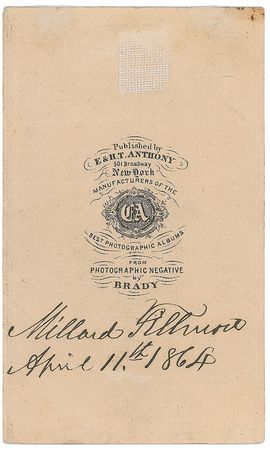 Published by
E & H.T. ANTHONY
501 Broadway
New York
MANUFACTURERS OF THE
EA
BEST PHOTOGRAPHIC ALBUMS
FROM
PHOTOGRAPHIC NEGATIVE
by
BRADY
Millard Fillmore
April 11.th 1864